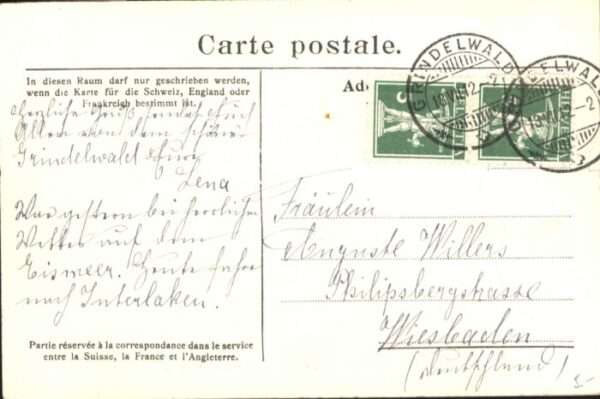 Carte postale.
In diesen Raum darf nur geschrieben werden,
wenn die Karte für die Schweiz, England oder
Frankreich bestimmt ist.
Herzliche Grüße sendet Euch
Allen von dem schönen
Grindelwald Eure
Lena
War gestern bei herrlichem
Wetter auf dem
Eismeer. Heute fahre
nach Interlaken.
Partie réservée à la correspondance dans le service
entre la Suisse, la France et l'Angleterre.
Ad
GRINDELWALD
5
Fräulein
Auguste Willers
Philippsbergstrasse
Wiesbaden
(Deutschland)